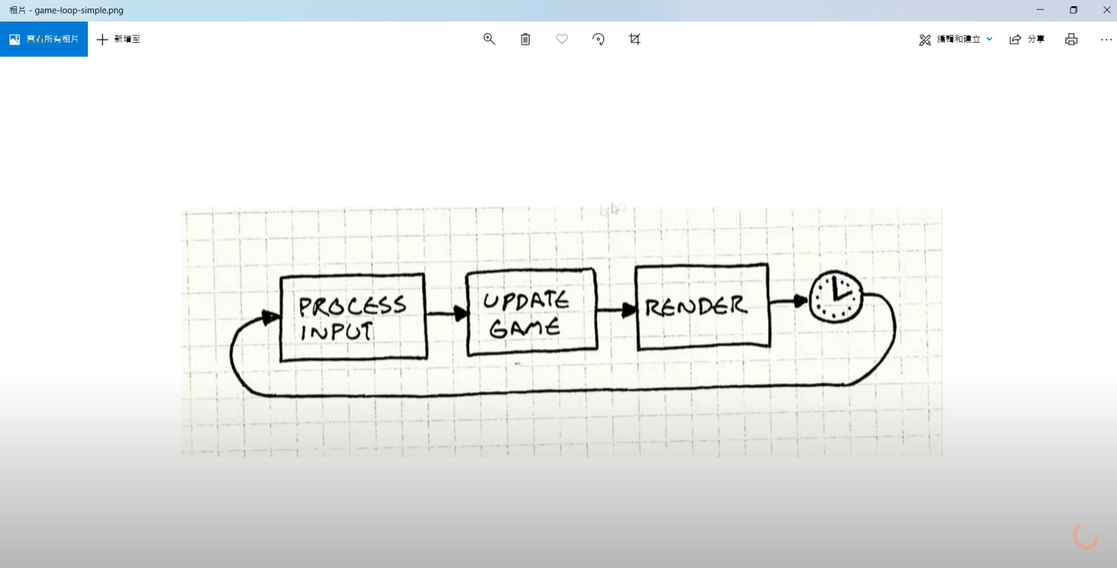 相片 - game-loop-simple.png
查看所有相片
新增至
編輯和建立
分享
PROCESS
INPUT
UPDATE
GAME
RENDER